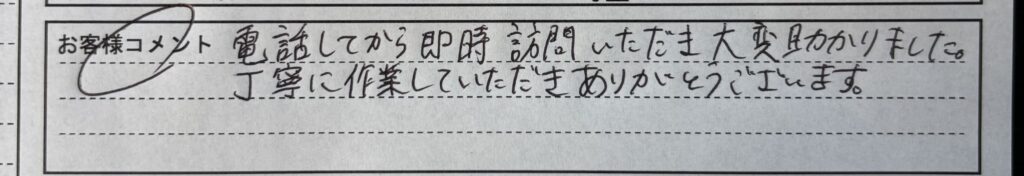 お客様コメント 電話してから即時訪問いただき大変助かりました。
丁寧に作業していただきありがとうございます。